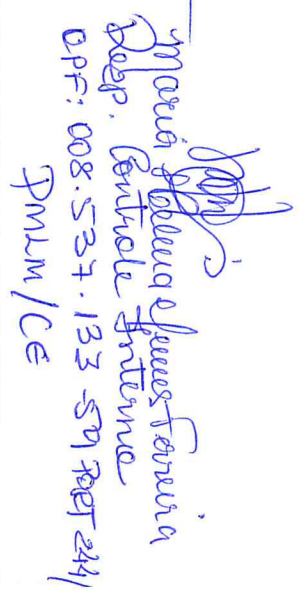 Maria Helena Gomes Ferreira
Resp. Controle Interno
CPF: 008.537.133-59 PORT 244/
PMLM/CE